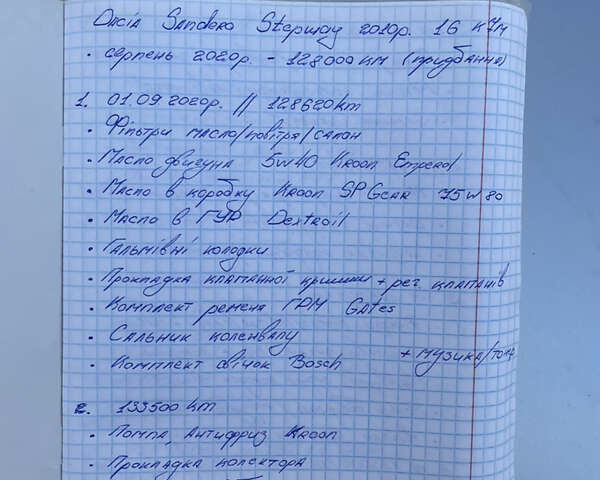 Dacia Sandero Stepway 2010р. 16 кл/м
• серпень 2020р. - 128000км (придбання)
1. 01.09 2020р. // 128620km
• Фільтри масло/повітря/салон
• Масло двигуна 5w40 Kroon Emperol
• Масло в коробку Kroon SP Gear 75w80
• Масло в ГУР Dextroil
• Гальмівні колодки
• Прокладка клапанної кришки + рег. клапанів
• Комплект ременя ГРМ Gates
• Сальник коленвалу
• Комплект свічок Bosch + музика/тон.
2. 133500 km
• Помпа, Антифриз Kroon
• Прокладка колектора